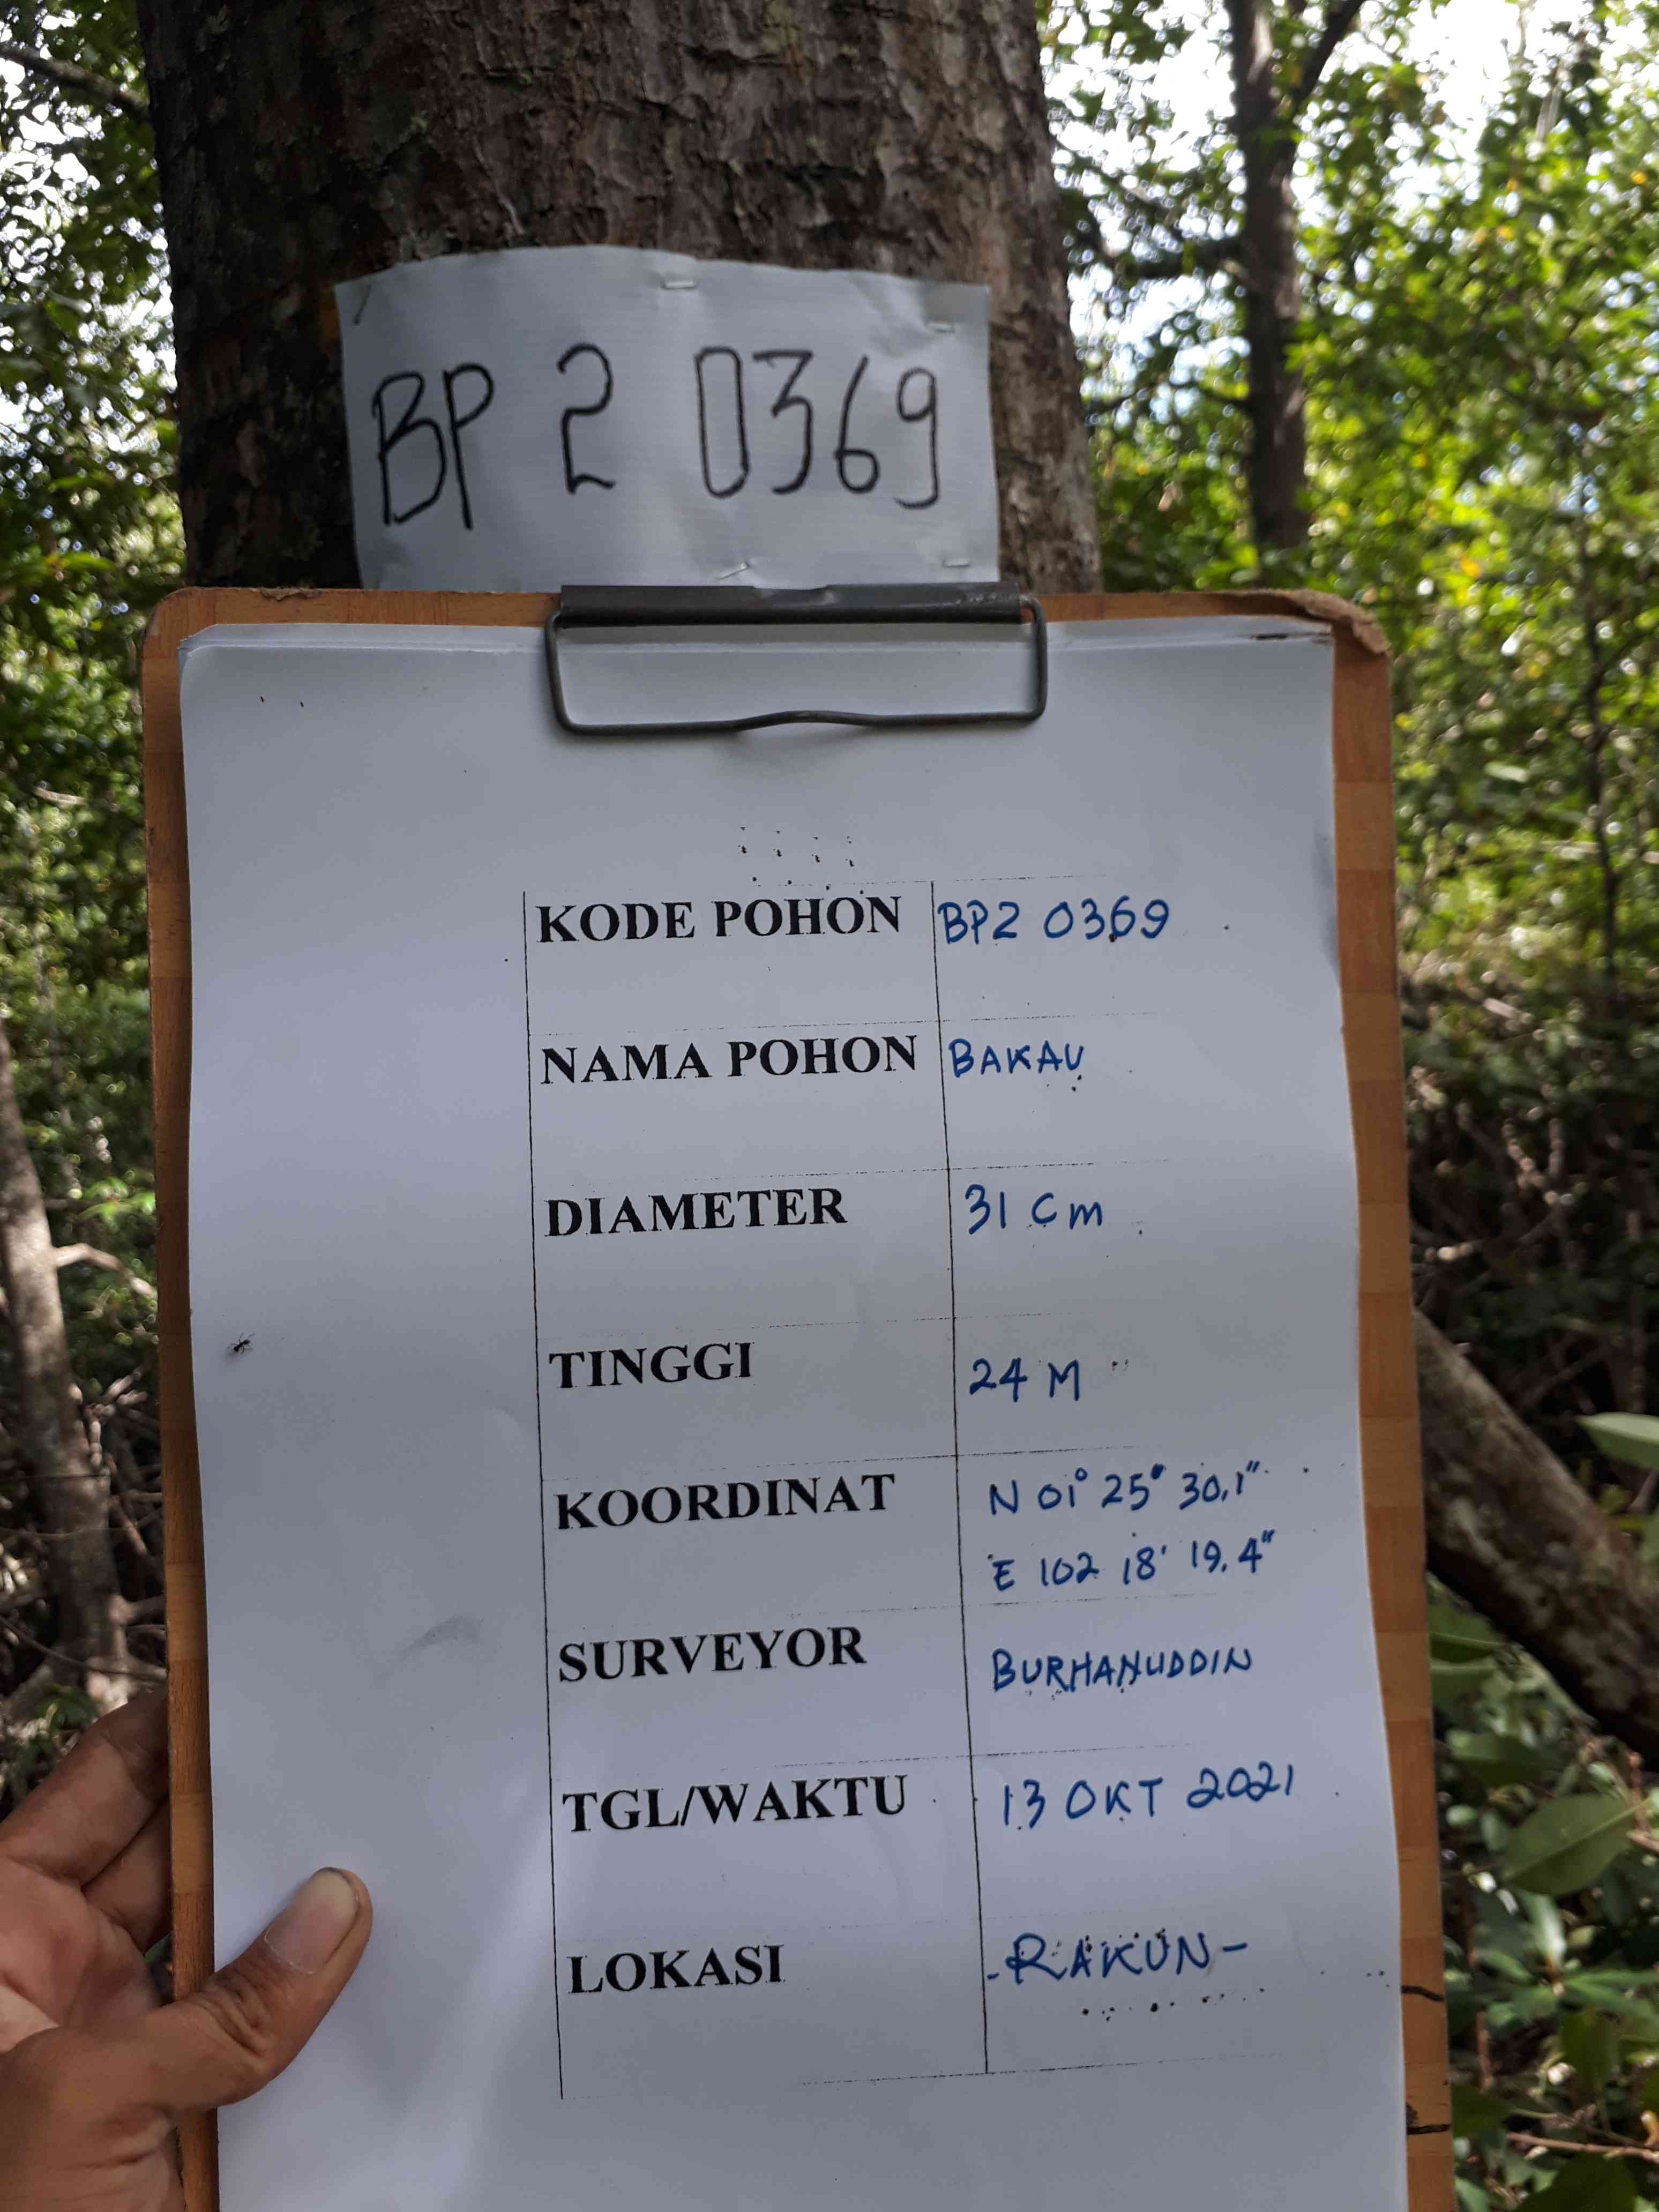 BP 2 0369
KODE POHON BP2 0369
NAMA POHON BAKAU
DIAMETER 31 Cm
TINGGI 24 M
KOORDINAT N 01° 25° 30,1"
E 102 18' 19.4"
SURVEYOR BURHANUDDIN
TGL/WAKTU 13 OKT 2021
LOKASI -RAKUN-